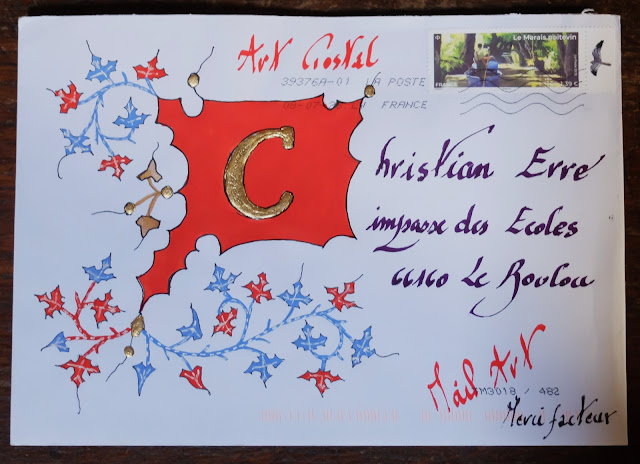 Art Postal
Le Marais poitevin
39376A-01 LA POSTE
FRANCE
FRANCE
1,39 €
Christian Erre
impasse des Ecoles
66160 Le Boulou
Mail Art
M3018 / 482
Merci facteur